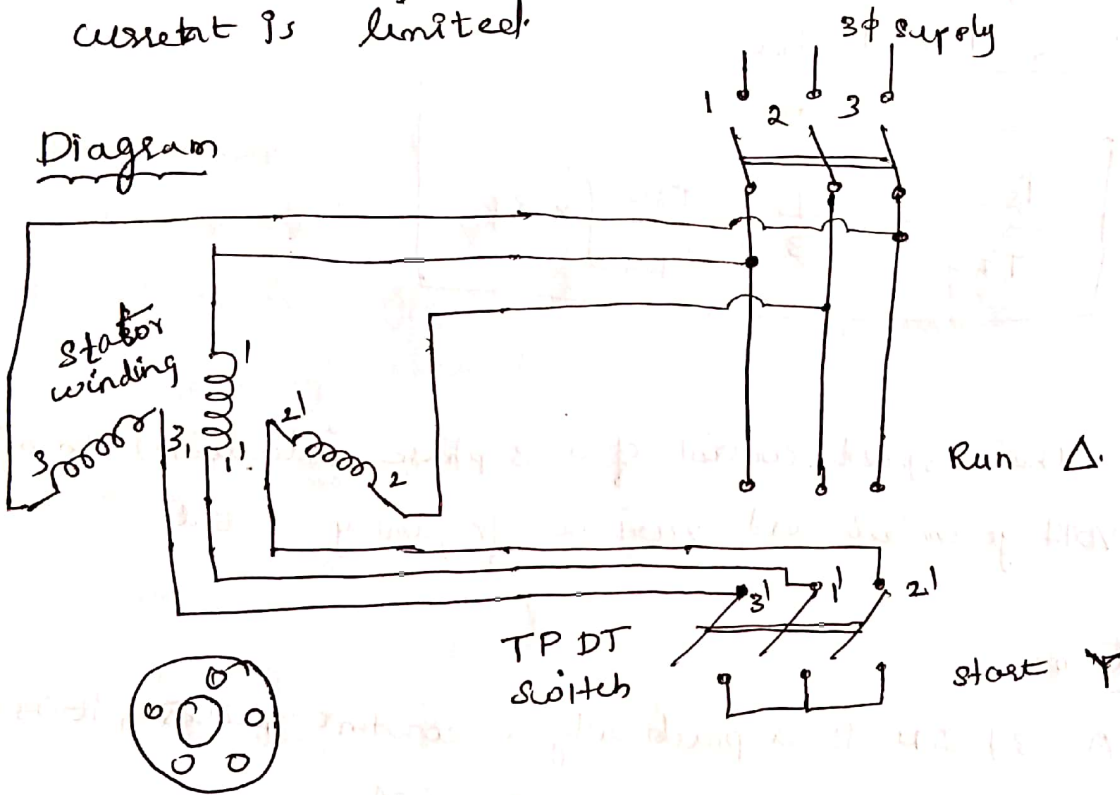 current is limited.
3ϕ supply
1 2 3
Diagram
stator
winding
1
3 3, 1' 2' 2
Run Δ.
3' 1' 2'
TPDT
switch
start Y